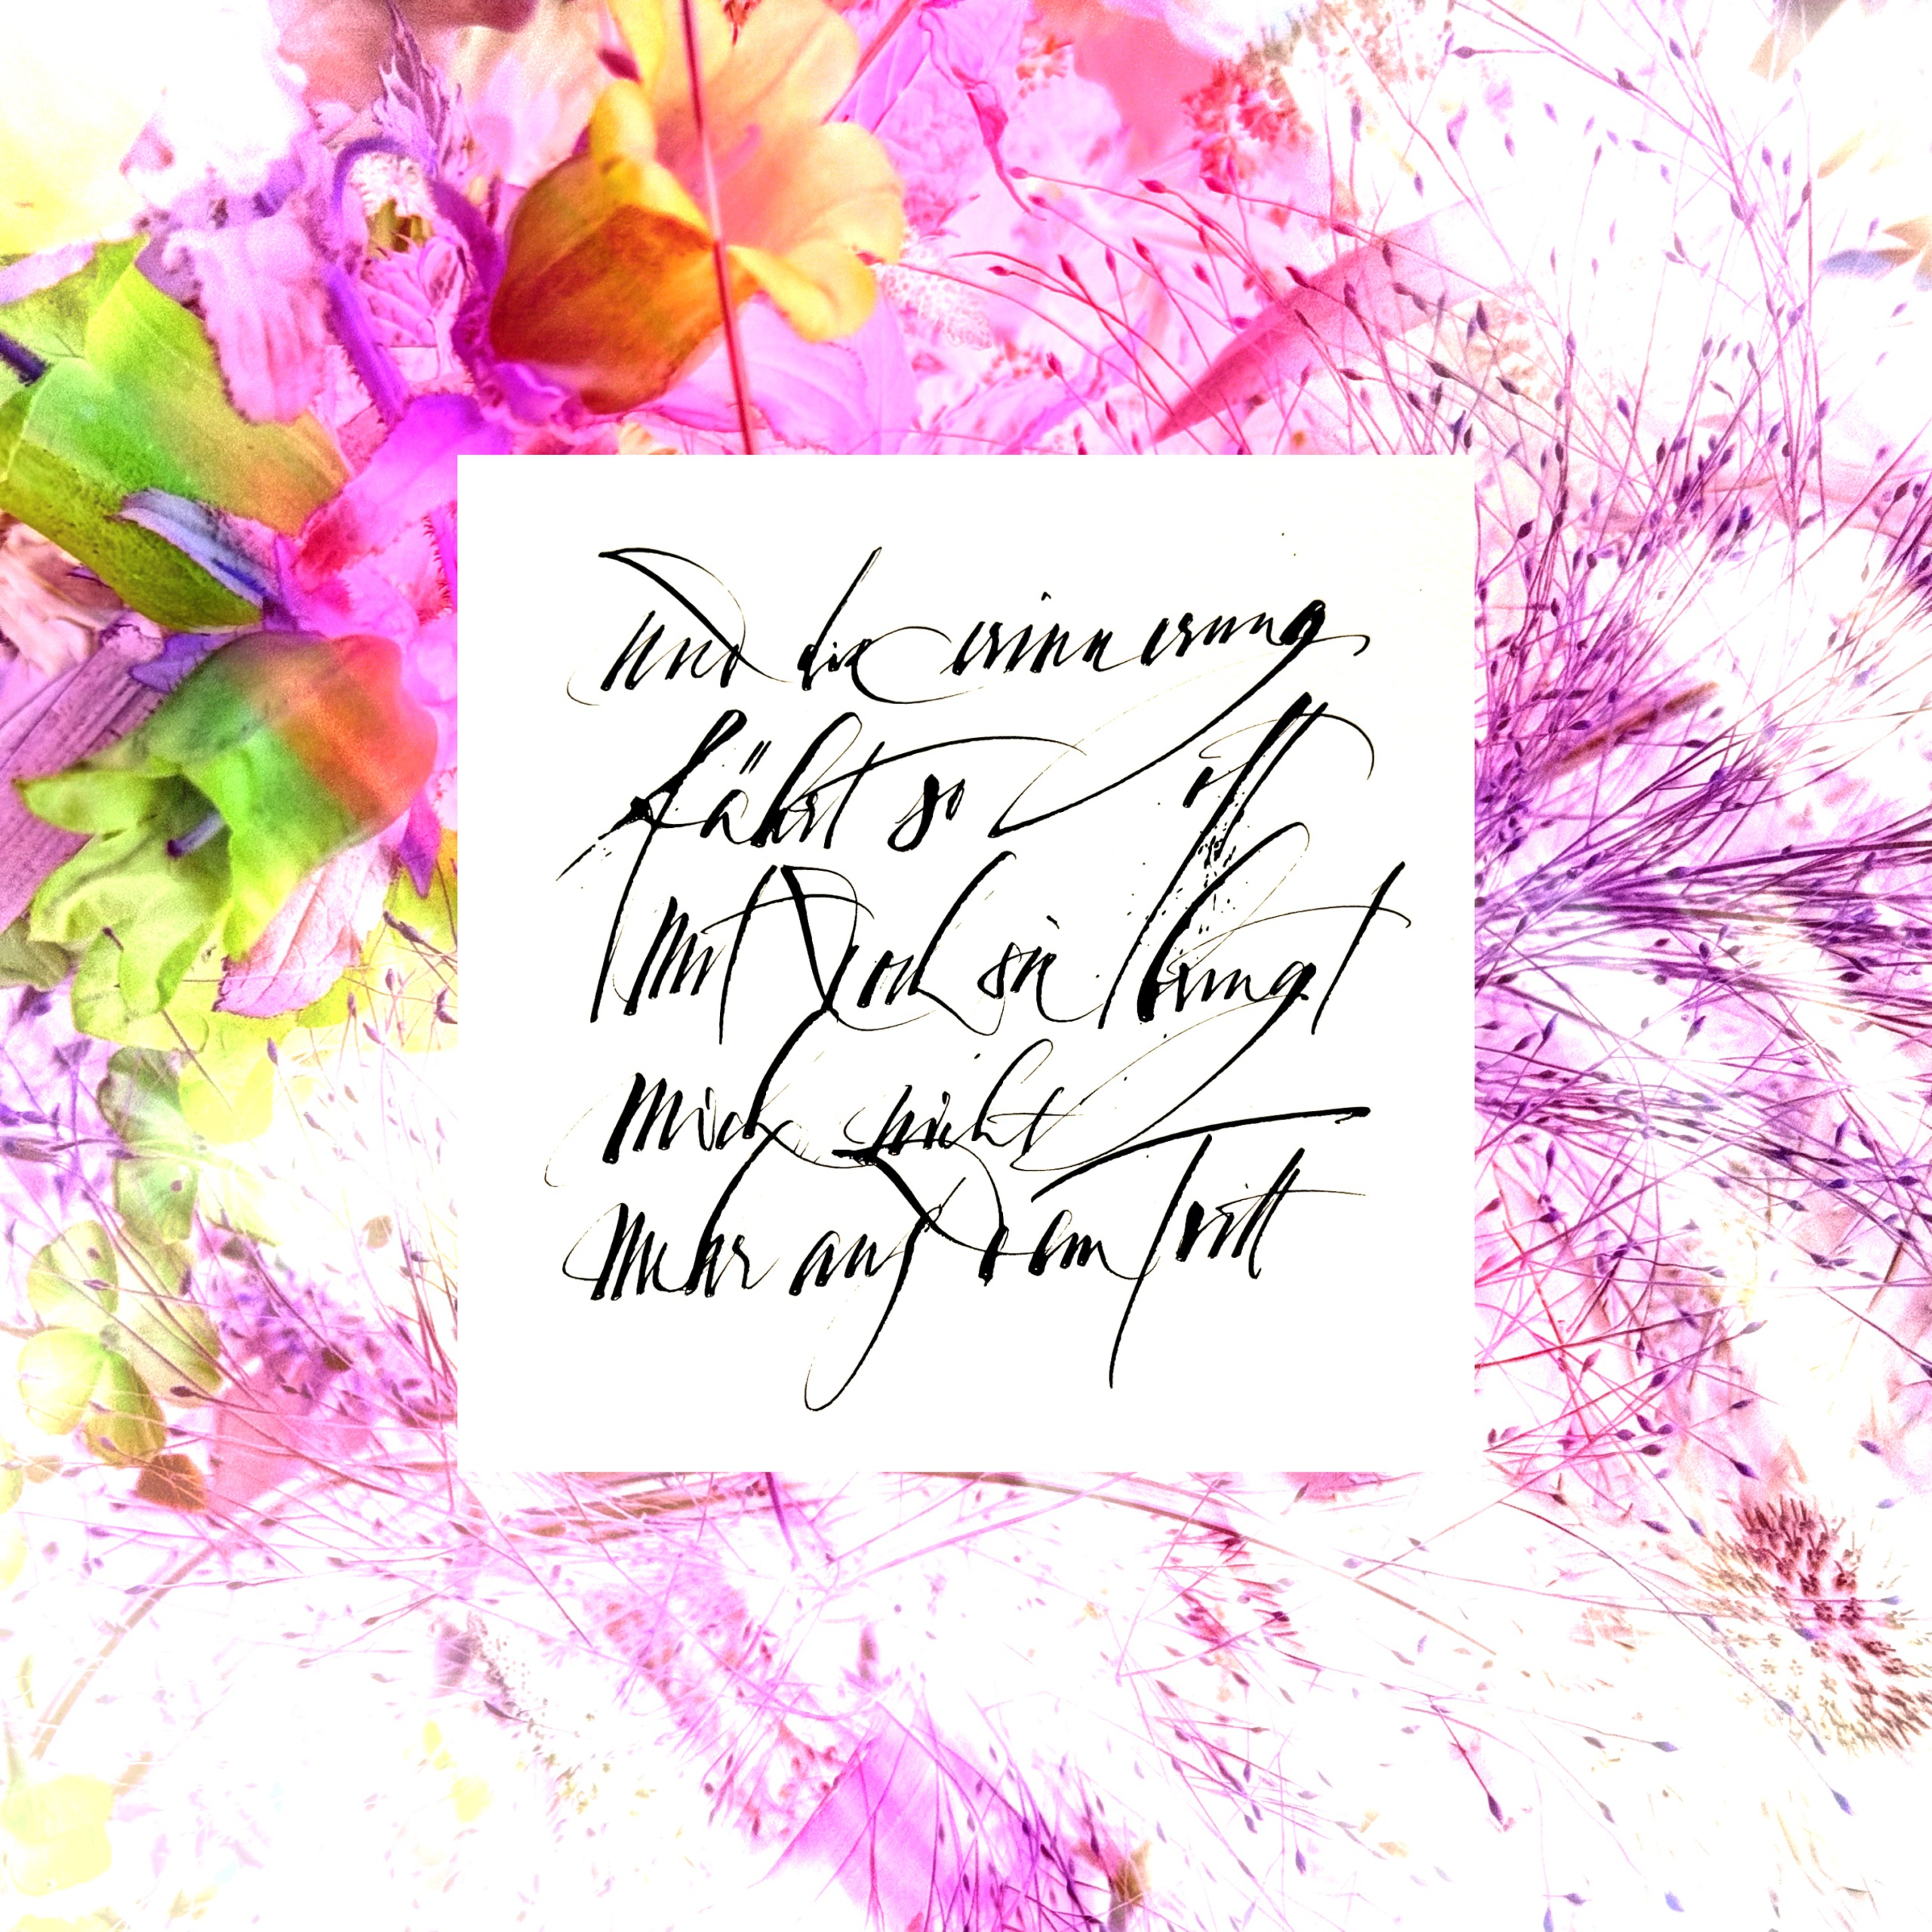 und die erinnerung
fährt so oft
mit Doch sie bringt
mich nicht
mehr aus dem Tritt